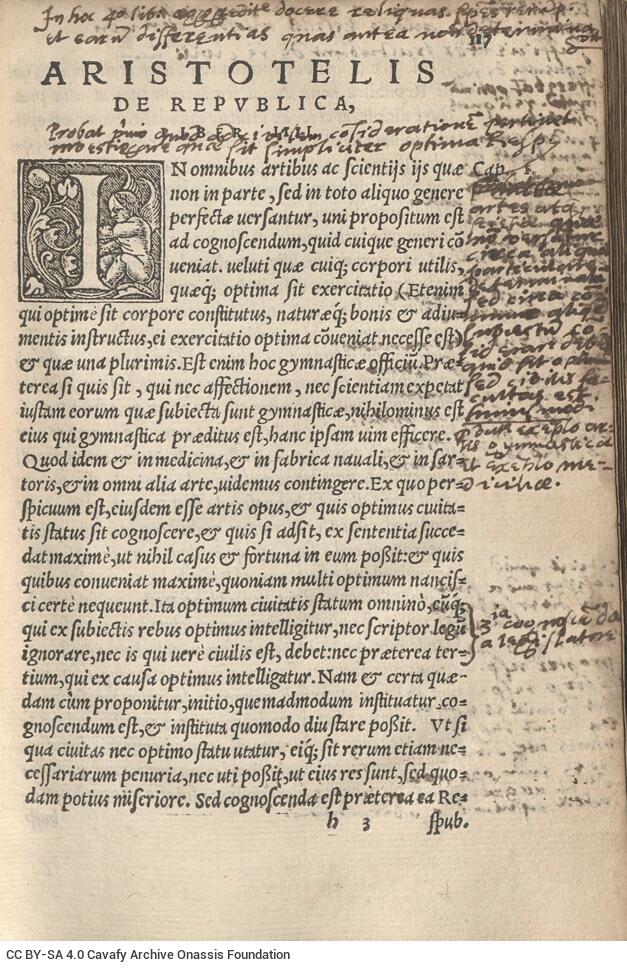 In hoc 4o libro docere reliquas species reip.
et earū differentias quas antea non determina
117
ARISTOTELIS
DE REPVBLICA,
LIBER IIII.
Probat considerationē pertinet
quæ sit simpliciter optima
IN omnibus artibus ac scientijs ijs quæ
Cap. 1.
non in parte, sed in toto aliquo genere
perfectæ versantur, uni propositum est
ad cognoscendum, quid cuique generi cō
ueniat. veluti quæ cuiq; corpori utilis,
quæq; optima sit exercitatio (Etenim
qui optimè sit corpore constitutus, naturæq; bonis & adiu-
mentis instructus, ei exercitatio optima cōueniat necesse est)
& quæ una plurimis. Est enim hoc gymnasticæ officiū. Præ-
terea si quis sit, qui nec affectionem, nec scientiam expetat
iustam eorum quæ subiecta sunt gymnasticæ, nihilominus est
eius qui gymnastica præditus est, hanc ipsam uim efficere.
Quod idem & in medicina, & in fabrica nauali, & in sar-
toris, & in omni alia arte, uidemus contingere. Ex quo per-
spicuum est, eiusdem esse artis opus, & quis optimus ciuita-
tis status sit cognoscere, & quis si adsit, ex sententia succe-
dat maximè, ut nihil casus & fortuna in eum poßit: & quis
quibus conueniat maximè, quoniam multi optimum nancis-
ci certè nequeunt. Ita optimum ciuitatis statum omnino, eūq;
qui ex subiectis rebus optimus intelligitur, nec scriptor legū
ignorare, nec is qui uerè ciuilis est, debet: nec præterea ter-
tium, qui ex causa optimus intelligatur. Nam & certa quæ-
dam cùm proponitur, initio, quemadmodum instituatur, co-
gnoscendum est, & instituta quomodo diu stare poßit. Vt si
qua ciuitas nec optimo statu utatur, eiq; sit rerum etiam ne-
cessariarum penuria, nec uti poßit, ut eius res sunt, sed quo-
dam potius miseriore. Sed cognoscenda est præterea ea Re-
h 3 spub.
sed ciuilis fa-
cultas est.
exēplo ar-
tis gymnastica
et exēplo me-
dicinæ.
3ia cognoscēda
a legislatore
CC BY-SA 4.0 Cavafy Archive Onassis Foundation